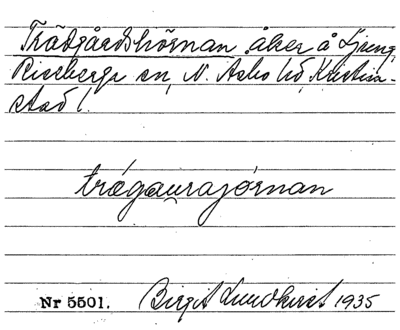 Trädgårdshörnan åker å Ljung
Riseberga sn, N. Åsbo hd, Kristian-
stad l.
trǽgaurajǿrnan
Nr 5501. Birgit Lundkvist 1935